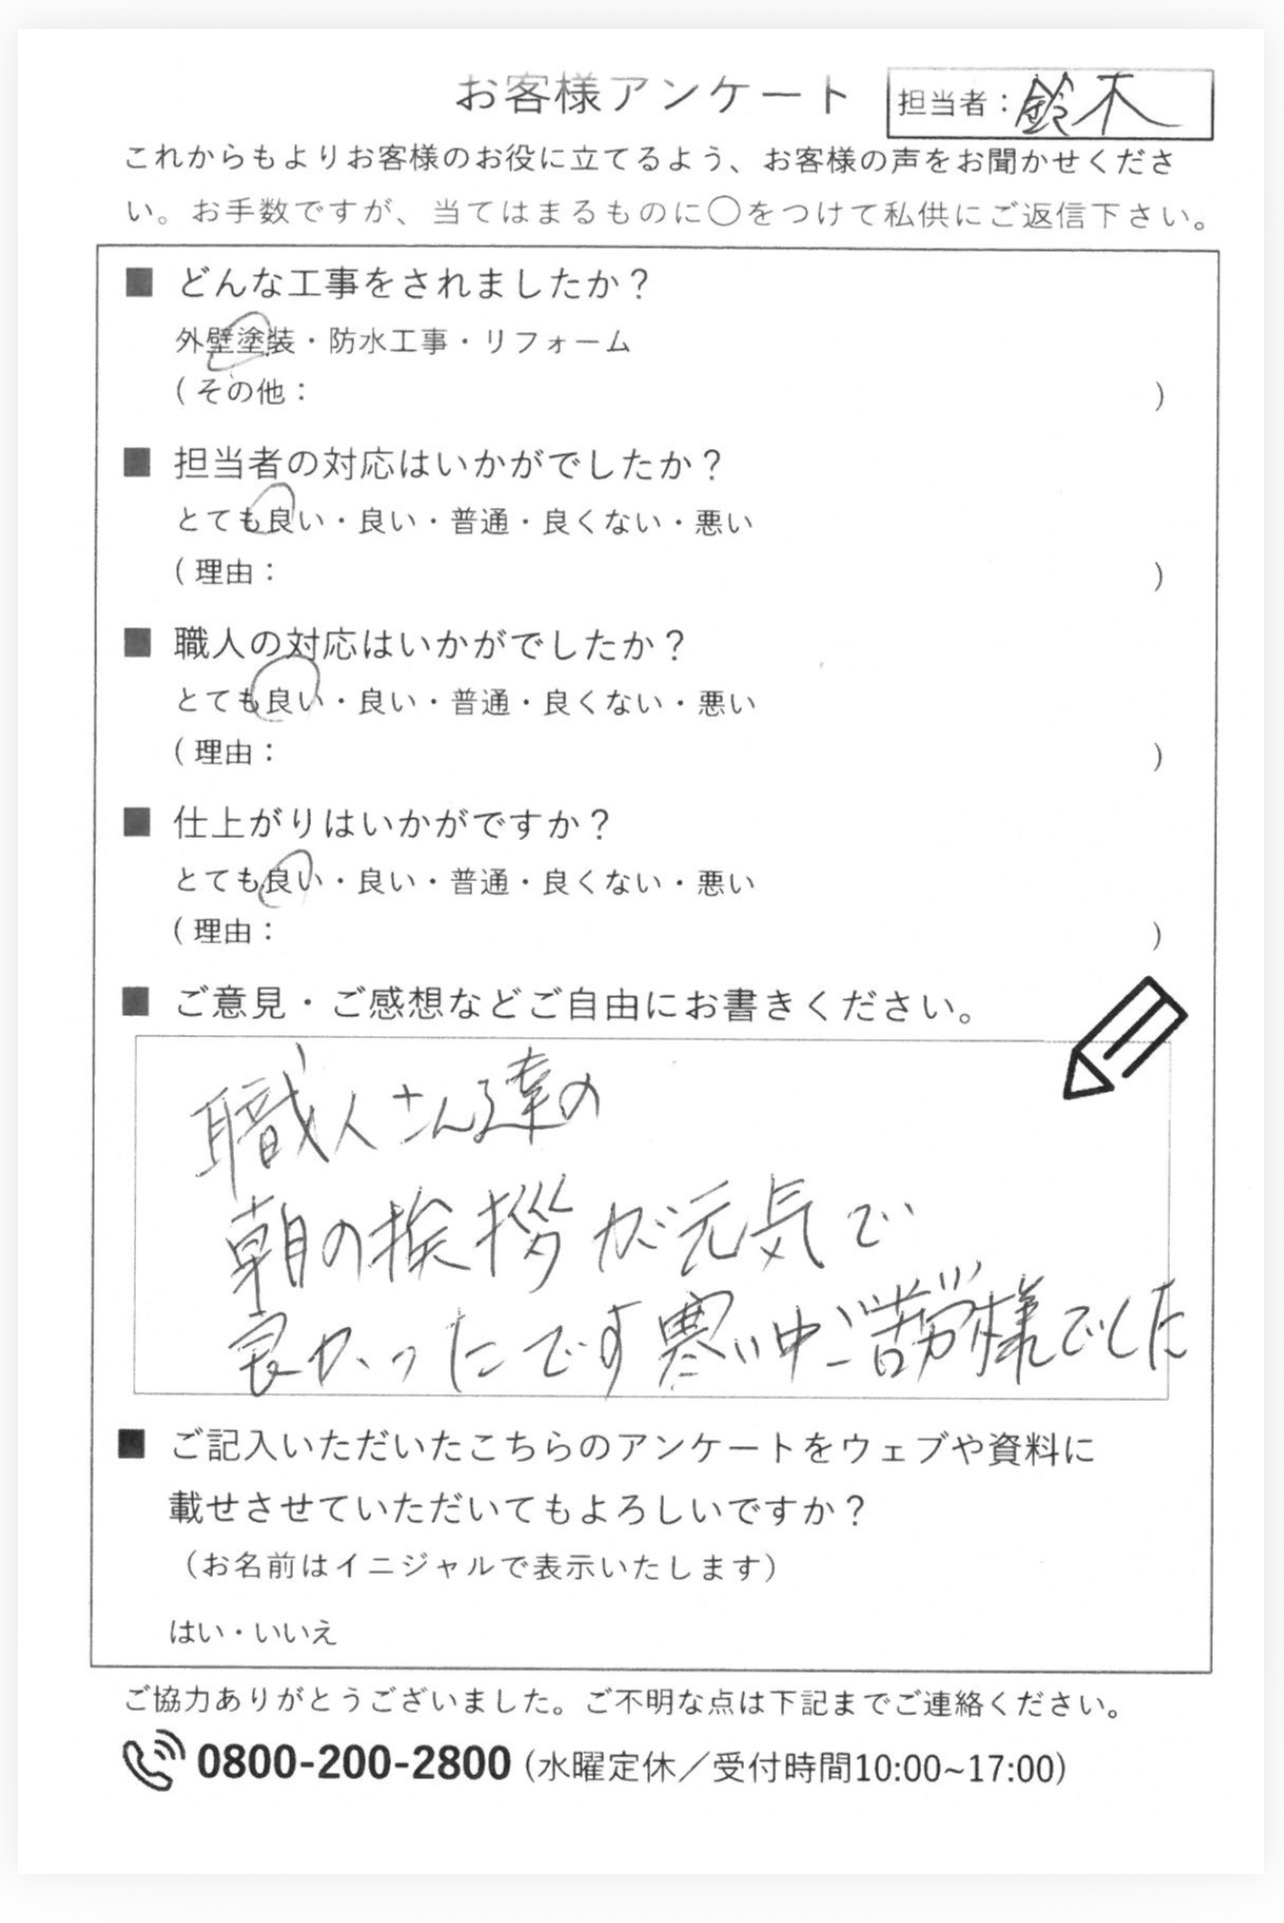 お客様アンケート
担当者：鈴木
これからもよりお客様のお役に立てるよう、お客様の声をお聞かせくださ
い。お手数ですが、当てはまるものに〇をつけて私供にご返信下さい。
■ どんな工事をされましたか？
外壁塗装・防水工事・リフォーム
（その他：　）
■ 担当者の対応はいかがでしたか？
とても良い・良い・普通・良くない・悪い
（理由：　）
■ 職人の対応はいかがでしたか？
とても良い・良い・普通・良くない・悪い
（理由：　）
■ 仕上がりはいかがですか？
とても良い・良い・普通・良くない・悪い
（理由：　）
■ ご意見・ご感想などご自由にお書きください。
職人さん達の
朝の挨拶が元気で
良かったです寒い中ご苦労様でした
■ ご記入いただいたこちらのアンケートをウェブや資料に
載せさせていただいてもよろしいですか？
（お名前はイニジャルで表示いたします）
はい・いいえ
ご協力ありがとうございました。ご不明な点は下記までご連絡ください。
0800-200-2800（水曜定休／受付時間10:00~17:00）